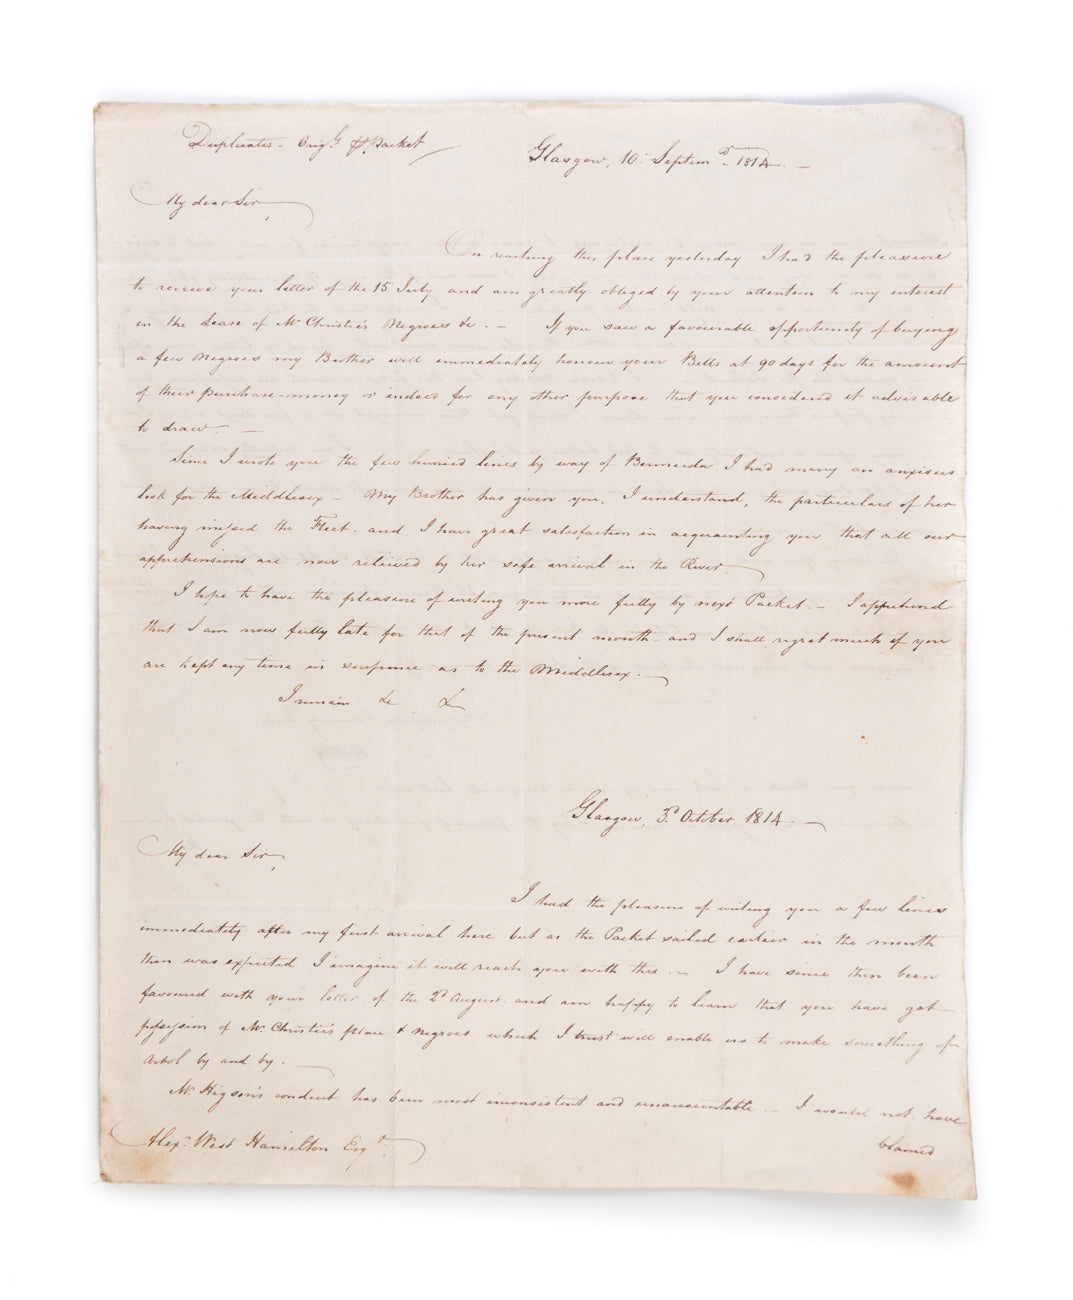 Duplicates - Origl. p Packet
Glasgow, 10 Septemr. 1814. -
My dear Sir,
On reaching this place yesterday I had the pleasure
to receive your letter of the 15 July and am greatly obliged by your attention to my interest
in the Lease of Mr Christie's Negroes &c. - If you saw a favourable opportunity of buying
a few Negroes my Brother will immediately honour your Bills at 90 days for the amount
of their purchase-money or indeed for any other purpose that you considered it advisable
to draw. -
Since I wrote you the few hurried lines by way of Bermuda I had many an anxious
look for the Middlesex - My Brother has given you, I understand, the particulars of her
having missed the Fleet. and I have great satisfaction in acquainting you that all our
apprehensions are now relieved by her safe arrival in the River.
I hope to have the pleasure of writing you more fully by next Packet. - I apprehend
that I am now fully late for that of the present month and I shall regret much if you
are kept any time in suspense as to the Middlesex. -
I remain &c &c
Glasgow, 3d. October 1814. -
My dear Sir,
I had the pleasure of writing you a few lines
immediately after my first arrival here but as the Packet sailed earlier in the month
than was expected I imagine it will reach you with this. - I have since then been
favoured with your letter of the 2d August. and am happy to learn that you have got
possession of Mr. Christie's place & negroes which I trust will enable us to make something of
Arbol by and by. -
Mr. Higson's conduct has been most inconsistent and unaccountable. - I would not have
blamed
Alexr. West Hamilton Esqr.